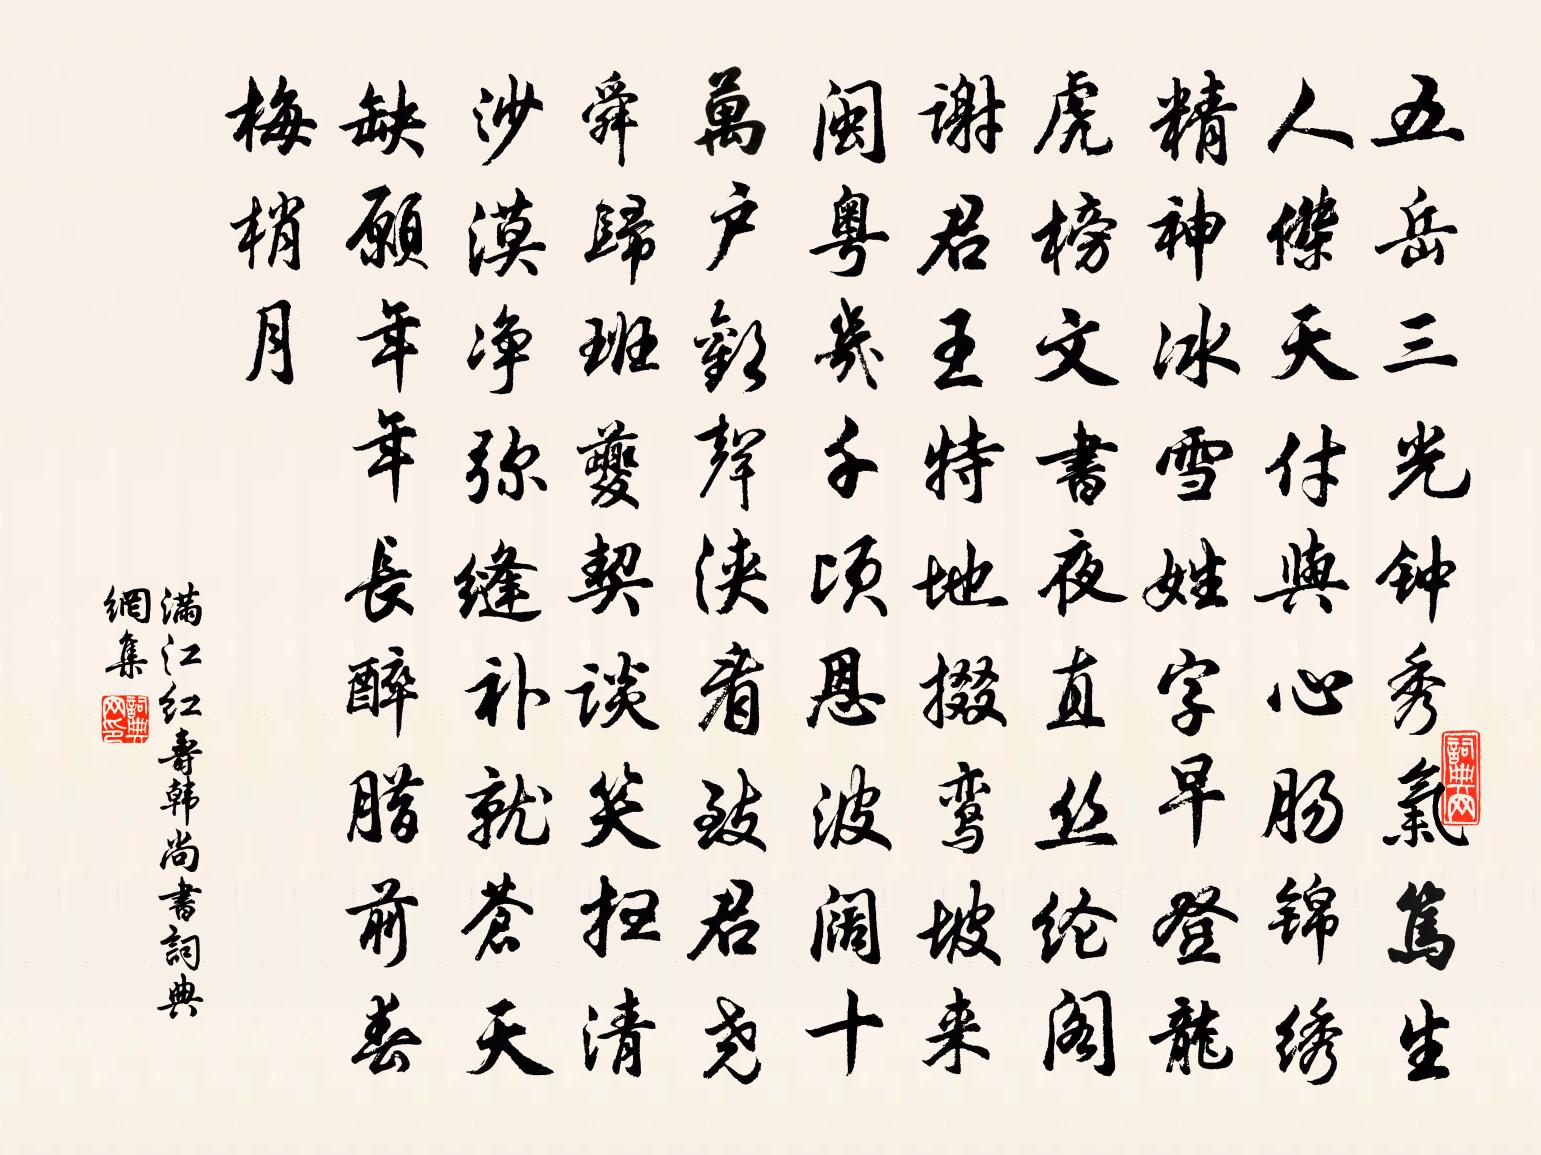 五岳三光钟秀氣篤生
人傑天付與心肠锦绣
精神冰雪姓字早登龍
虎榜文書夜直丝纶阁
谢君王特地掇鸾坡来
闽粤幾千顷恩波阔十
萬户歡聲浃看致君尧
舜歸班夔契谈笑扫清
沙漠净弥缝补就蒼天
缺願年年長醉腊前春
梅梢月
满江红壽韩尚書詞典
網集
詞典网
詞典网印